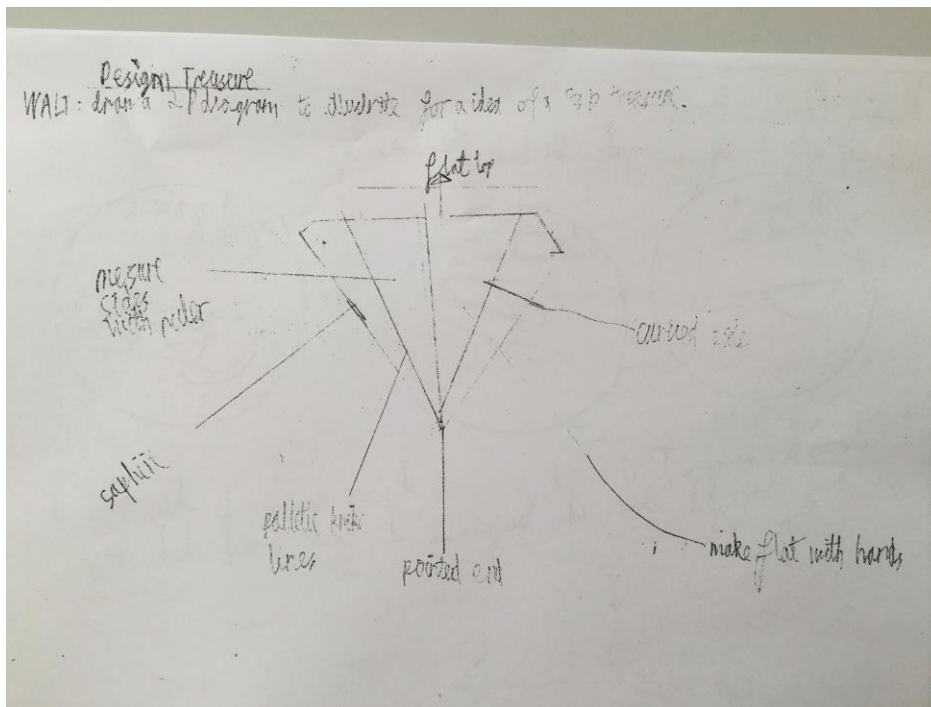 Design Treasure
WALT: draw a 2D diagram to illustrate for a idea of a 3D treasure.
flat top
mesure
clay
with ruler
curved side
saphire
palletic knife
lines
pointed end
make flat with hands